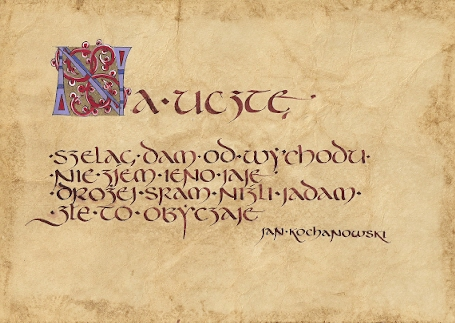 NA·UCZTĘ·
·SZELĄG·DAM·OD·WYCHODU·
NIE·ZJEM·JENO·JAJE
DROŻEJ·SRAM·NIŻLI·JADAM·
ZŁE·TO·OBYCZAJE
JAN·KOCHANOWSKI